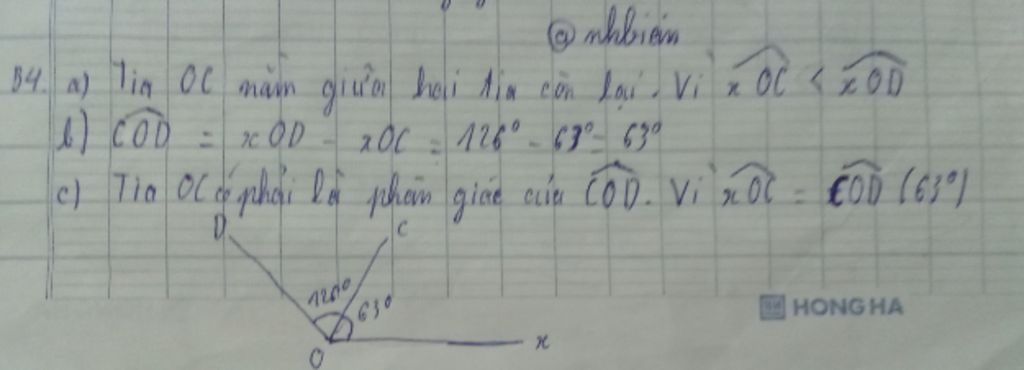 @nhbien
B4. a) Tia OC nằm giữa hai tia còn lại. Vì xOC < xOD
b) COD = xOD - xOC = 126° - 63° = 63°
c) Tia OC có phải là phân giác của COD. Vì xOC = COD (63°)
D C
126° 63°
HONG HA
O x